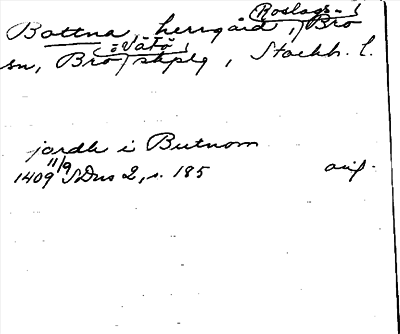 Bottna, herrgård, (Roslags-) Bro
sn, Bro (o Vätö) skplg, Stockh. l.
jordh i Butnom
1409 11/9 SDns 2, s. 185 avs.